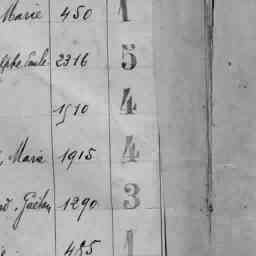 Marie 450 1
Emile 2316 5
1510 4
, Marie 1915 4
Gaëtan 1290 3
485 1